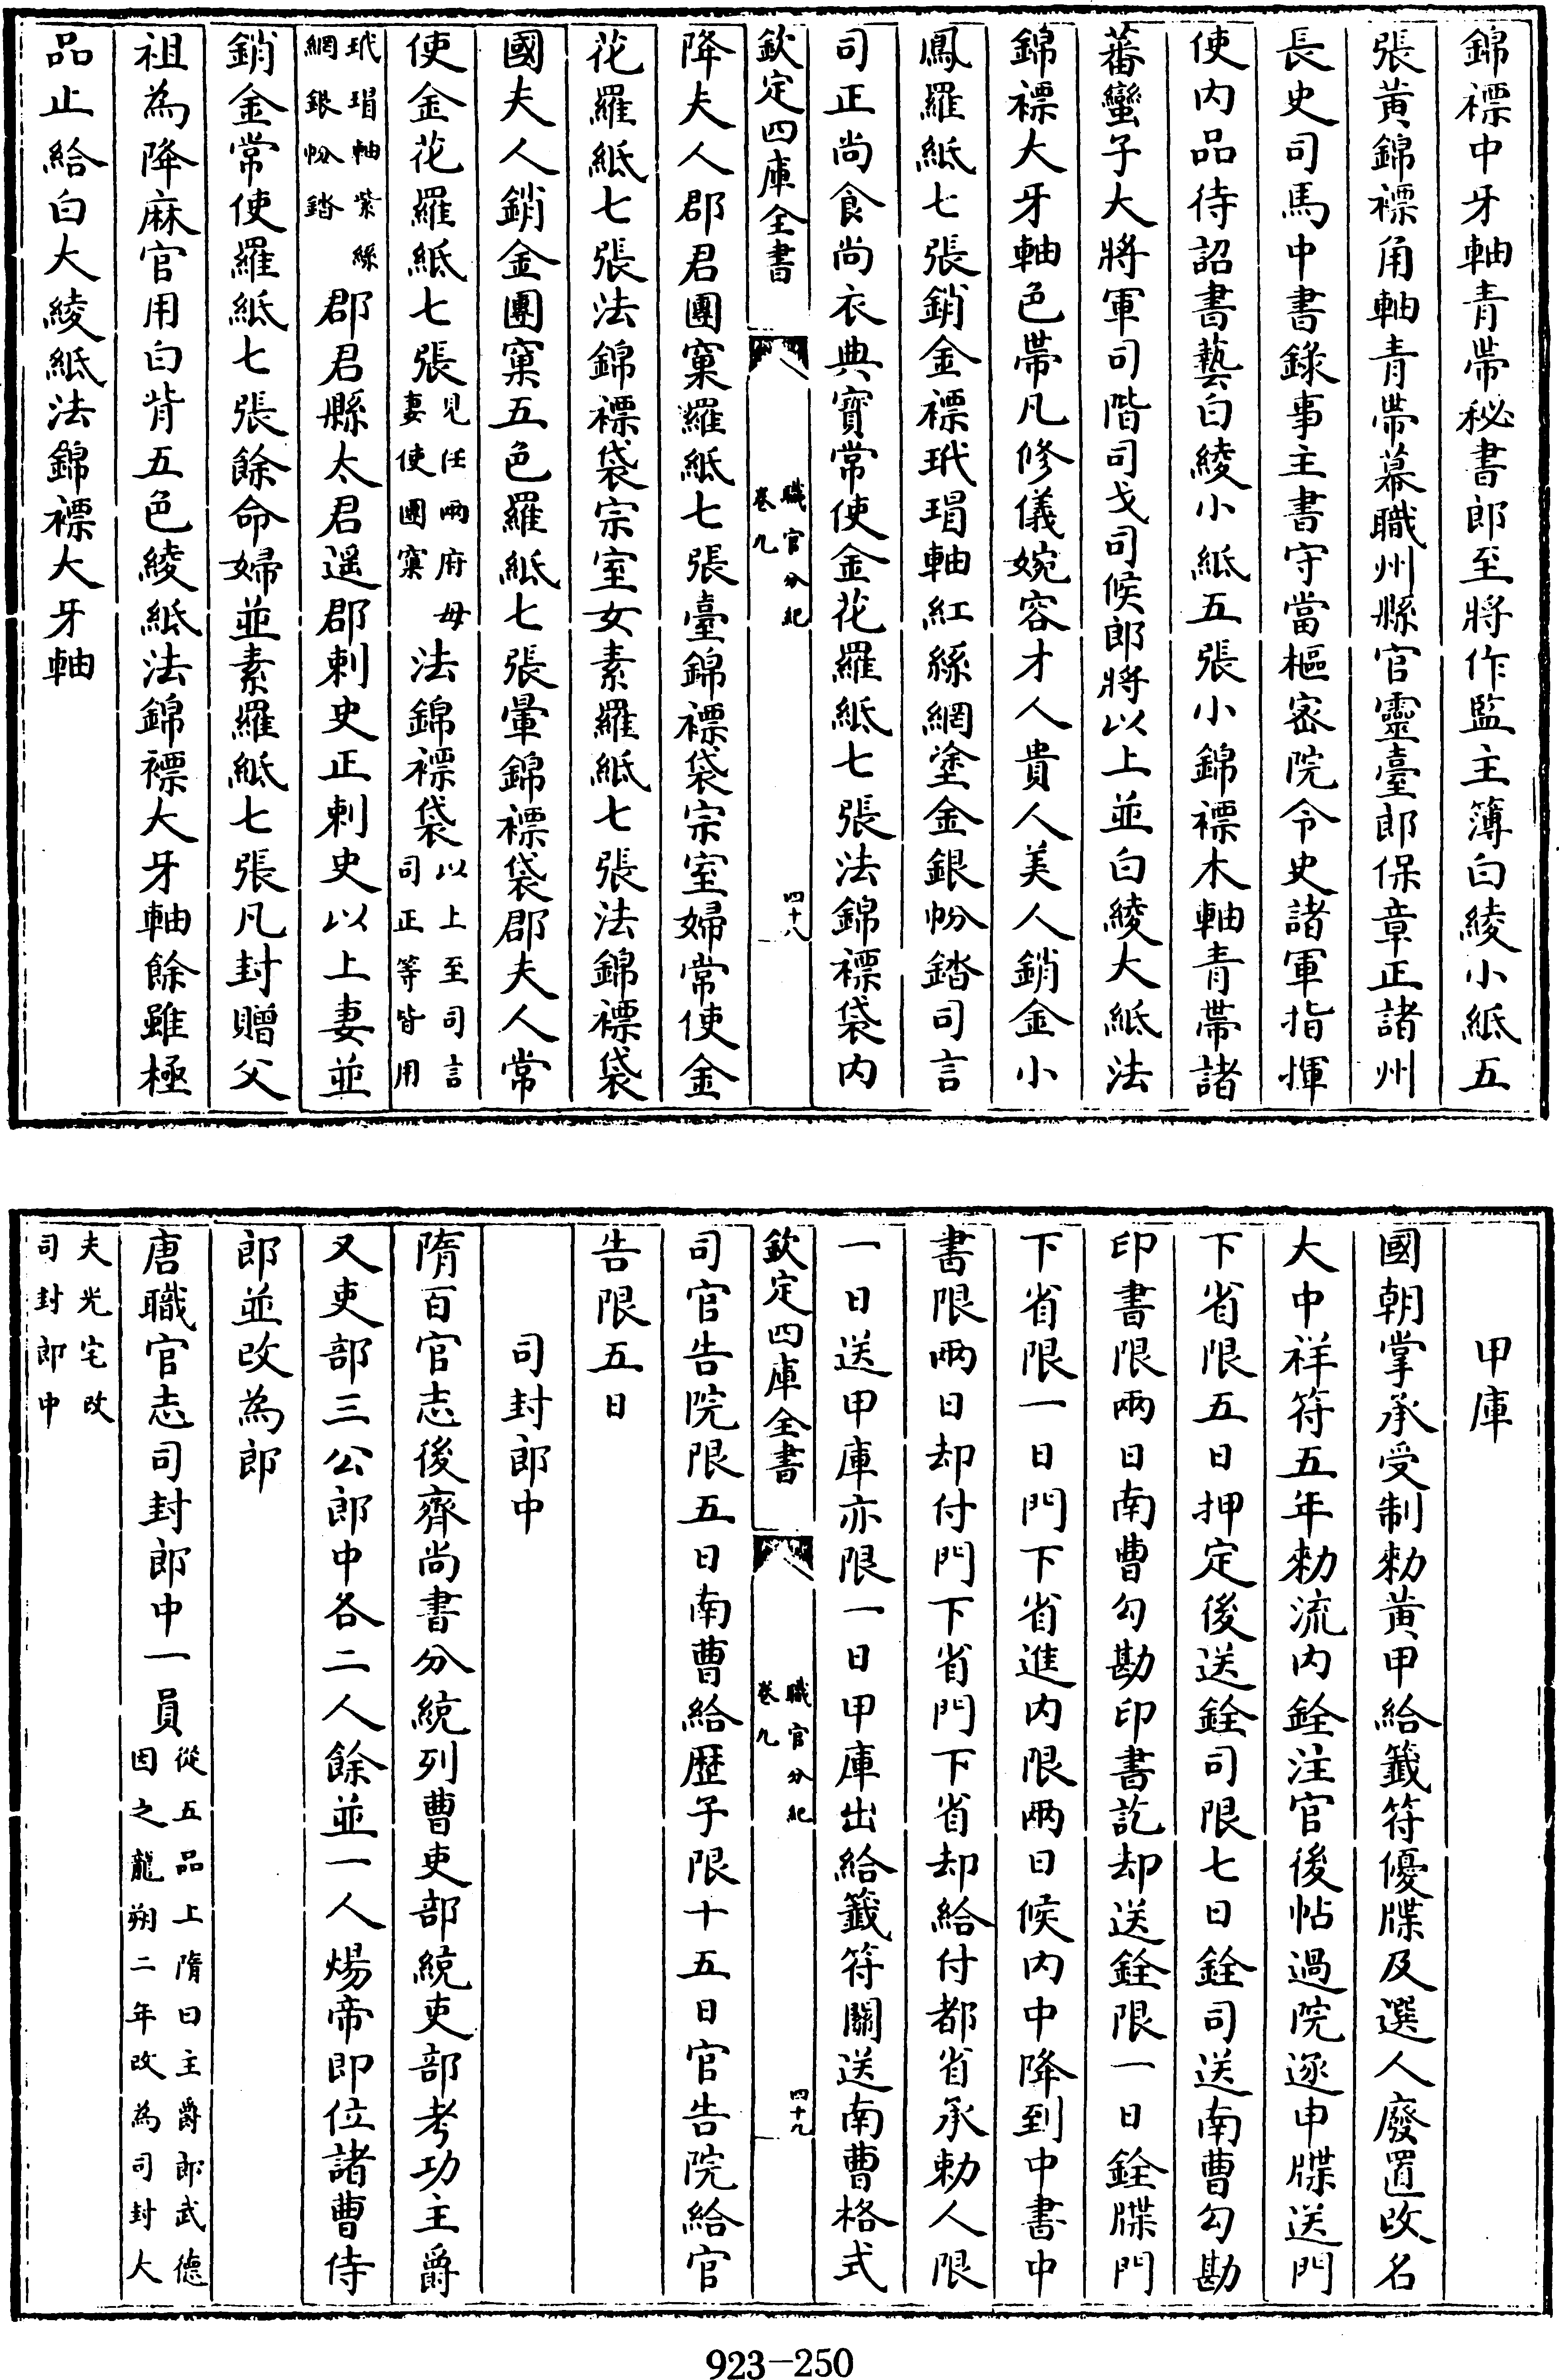 錦褾中牙軸青帶秘書郎至將作監主簿白綾小紙五
張黃錦褾角軸青帶幕職州縣官靈臺郎保章正諸州
長史司馬中書錄事主書守當樞密院令史諸軍指揮
使内品待詔書藝白綾小紙五張小錦褾木軸青帶諸
蕃蠻子大將軍司階司戈司候郎將以上並白綾大紙法
錦褾大牙軸色帶凡修儀婉容才人貴人美人銷金小
鳳羅紙七張銷金褾玳瑁軸紅絲網塗金銀帉錔司言
司正尚食尚衣典寶常使金花羅紙七張法錦褾袋内
欽定四庫全書
職官分紀
卷九
四十八
降夫人郡君團窠羅紙七張臺錦褾袋宗室婦常使金
花羅紙七張法錦褾袋宗室女素羅紙七張法錦褾袋
國夫人銷金團窠五色羅紙七張暈錦褾袋郡夫人常
使金花羅紙七張見任兩府母妻使團窠法錦褾袋以上至司言司正等皆用
玳瑁軸紫絲網銀帉錔郡君縣太君遥郡刺史正刺史以上妻並
銷金常使羅紙七張餘命婦並素羅紙七張凡封贈父
祖為降麻官用白背五色綾紙法錦褾大牙軸餘雖極
品止給白大綾紙法錦褾大牙軸
甲庫
國朝掌承受制勅黃甲給籤符優牒及選人廢置改名
大中祥符五年勅流内銓注官後帖過院逐申牒送門
下省限五日押定後送銓司限七日銓司送南曹勾勘
印書限兩日南曹勾勘印書訖却送銓限一日銓牒門
下省限一日門下省進内限兩日候内中降到中書中
書限兩日却付門下省門下省却給付都省承勅人限
一日送甲庫亦限一日甲庫出給籤符關送南曹格式
欽定四庫全書
職官分紀
卷九
四十九
司官告院限五日南曹給歴子限十五日官告院給官
告限五日
司封郎中
隋百官志後齊尚書分統列曹吏部統吏部考功主爵
又吏部三公郎中各二人餘並一人煬帝即位諸曹侍
郎並改為郎
唐職官志司封郎中一員從五品上隋曰主爵郎武德因之龍朔二年改為司封大
夫光宅改司封郎中
923-250